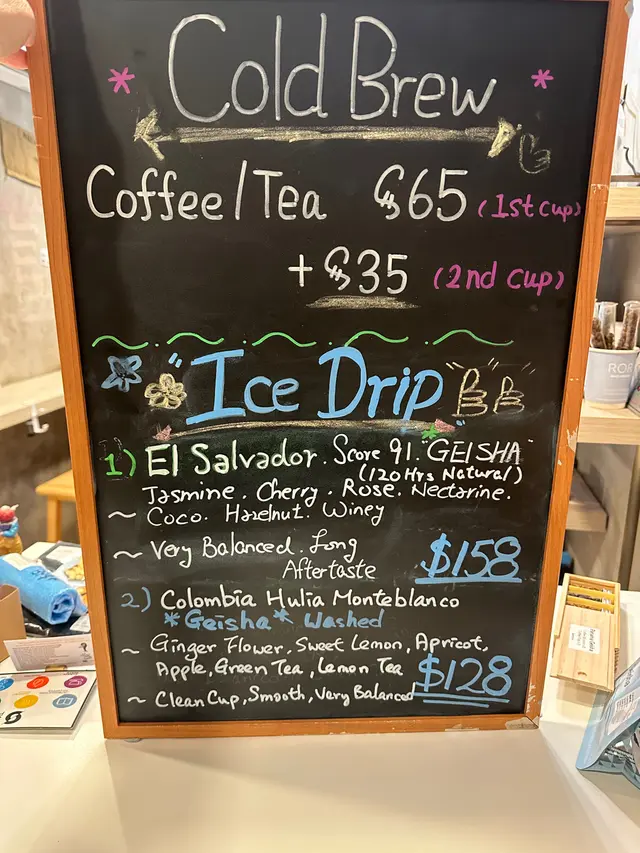 Cold Brew
Coffee/Tea $65 (1st cup)
+$35 (2nd cup)
"Ice Drip"
1) El Salvador. Score 91. "GEISHA"
(120 Hrs Natural)
Jasmine. Cherry. Rose. Nectarine.
~ Coco. Hazelnut. Winey
~ Very Balanced. Long
Aftertaste $158
2) Colombia Hulia Monteblanco
*Geisha* Washed
~ Ginger Flower, Sweet Lemon, Apricot,
Apple, Green Tea, Lemon Tea $128
~ Clean Cup, Smooth, Very Balanced